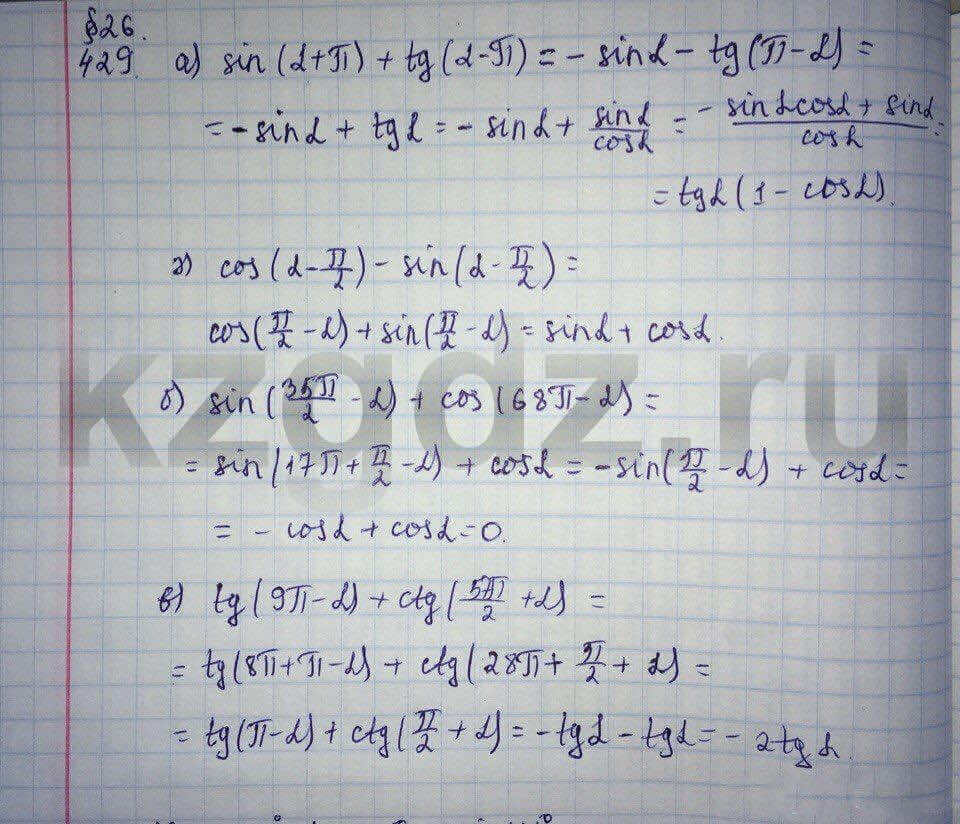 §26.
429. а) sin(α+π) + tg(α-π) = - sinα - tg(π-α) =
= -sinα + tgα = - sinα + sinα/cosα = (- sinα cosα + sinα)/cosα =
= tgα(1 - cosα).
г) cos(α-π/2) - sin(α-π/2) =
cos(π/2-α) + sin(π/2-α) = sinα + cosα.
kzgdz.ru
б) sin(35π/2-α) + cos(68π-α) =
= sin(17π+π/2-α) + cosα = -sin(π/2-α) + cosα =
= - cosα + cosα = 0.
в) tg(9π-α) + ctg(5π/2+α) =
= tg(8π+π-α) + ctg(28π+π/2+α) =
= tg(π-α) + ctg(π/2+α) = -tgα - tgα = - 2tgα.